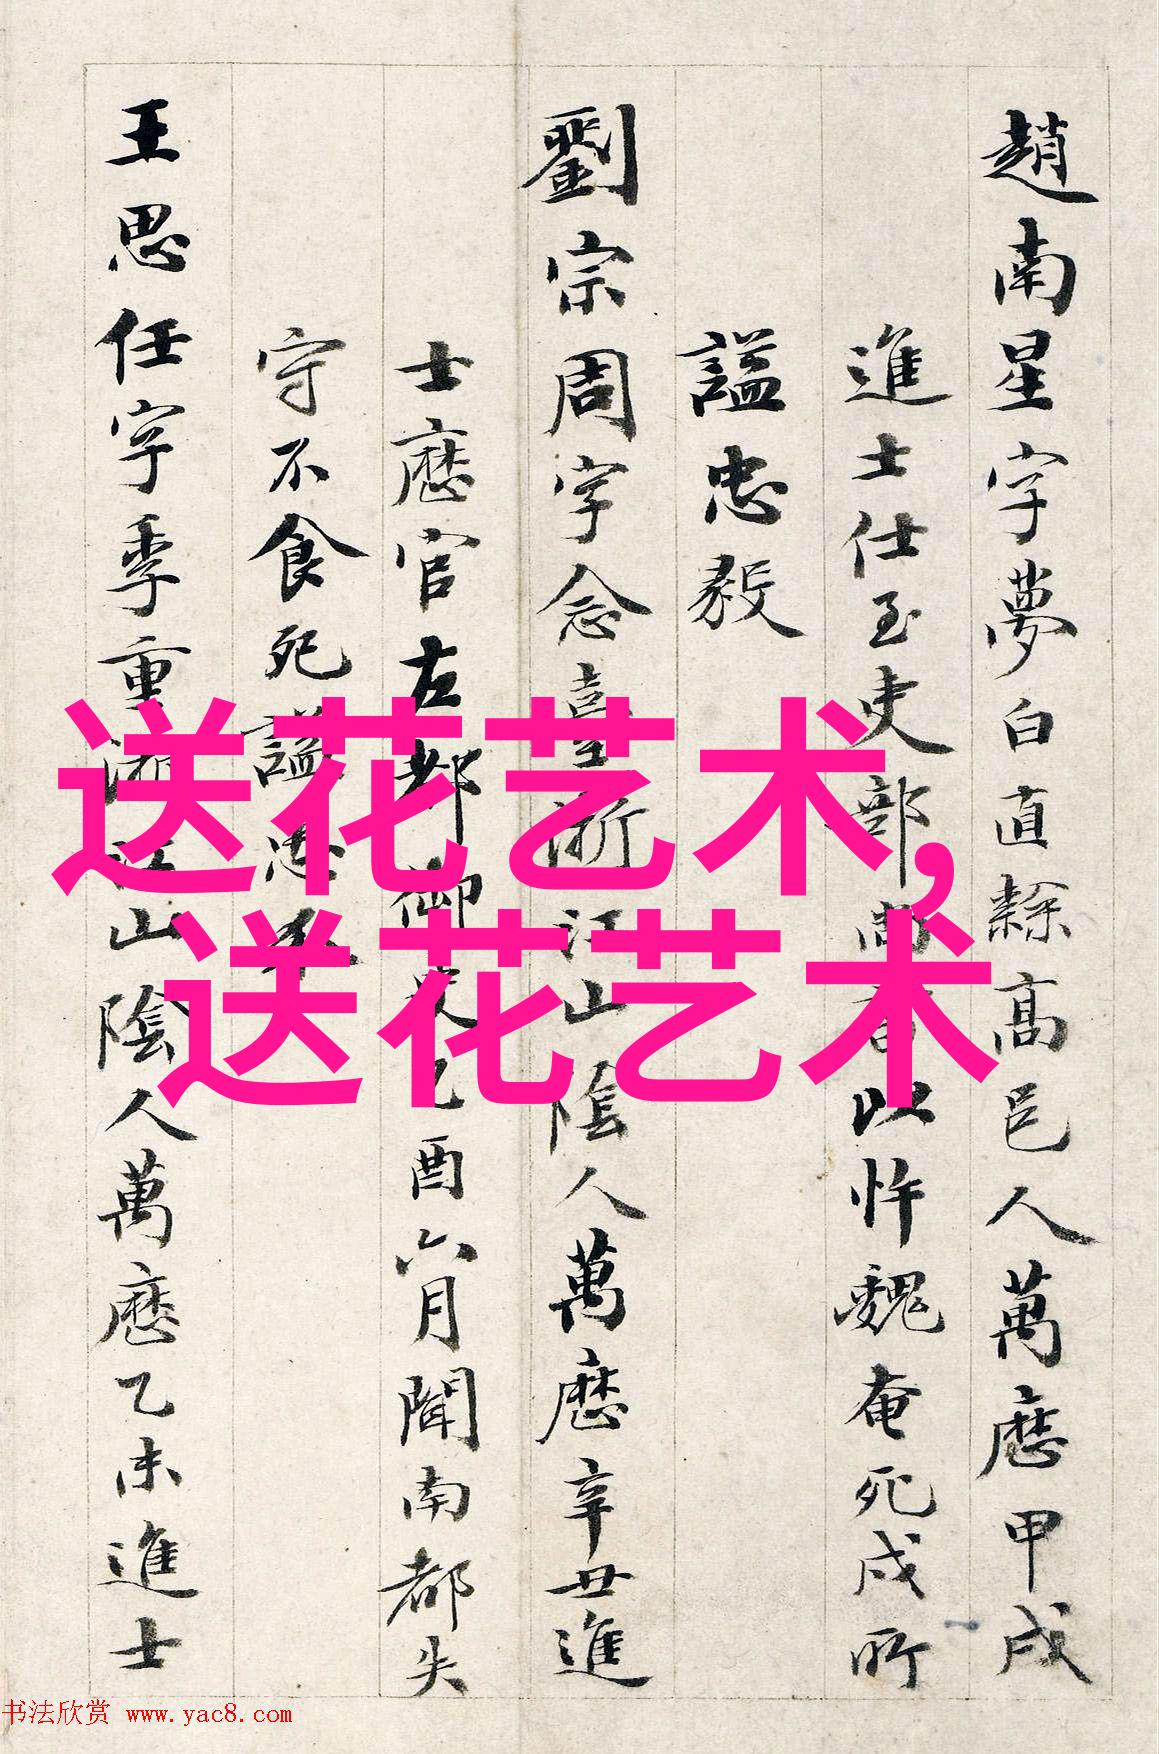 趙南星字夢白直隸高邑人萬曆甲戌
進士仕至吏部尚書以忤魏奄死戍所
謚忠毅
劉宗周字念臺浙江山陰人萬曆辛丑進
士歷官左都御史乙酉六月聞南都失
守不食死謚忠
王思任字季重浙江山陰人萬曆乙未進士
送花艺术,
送花艺术
书法欣赏 www.yac8.com